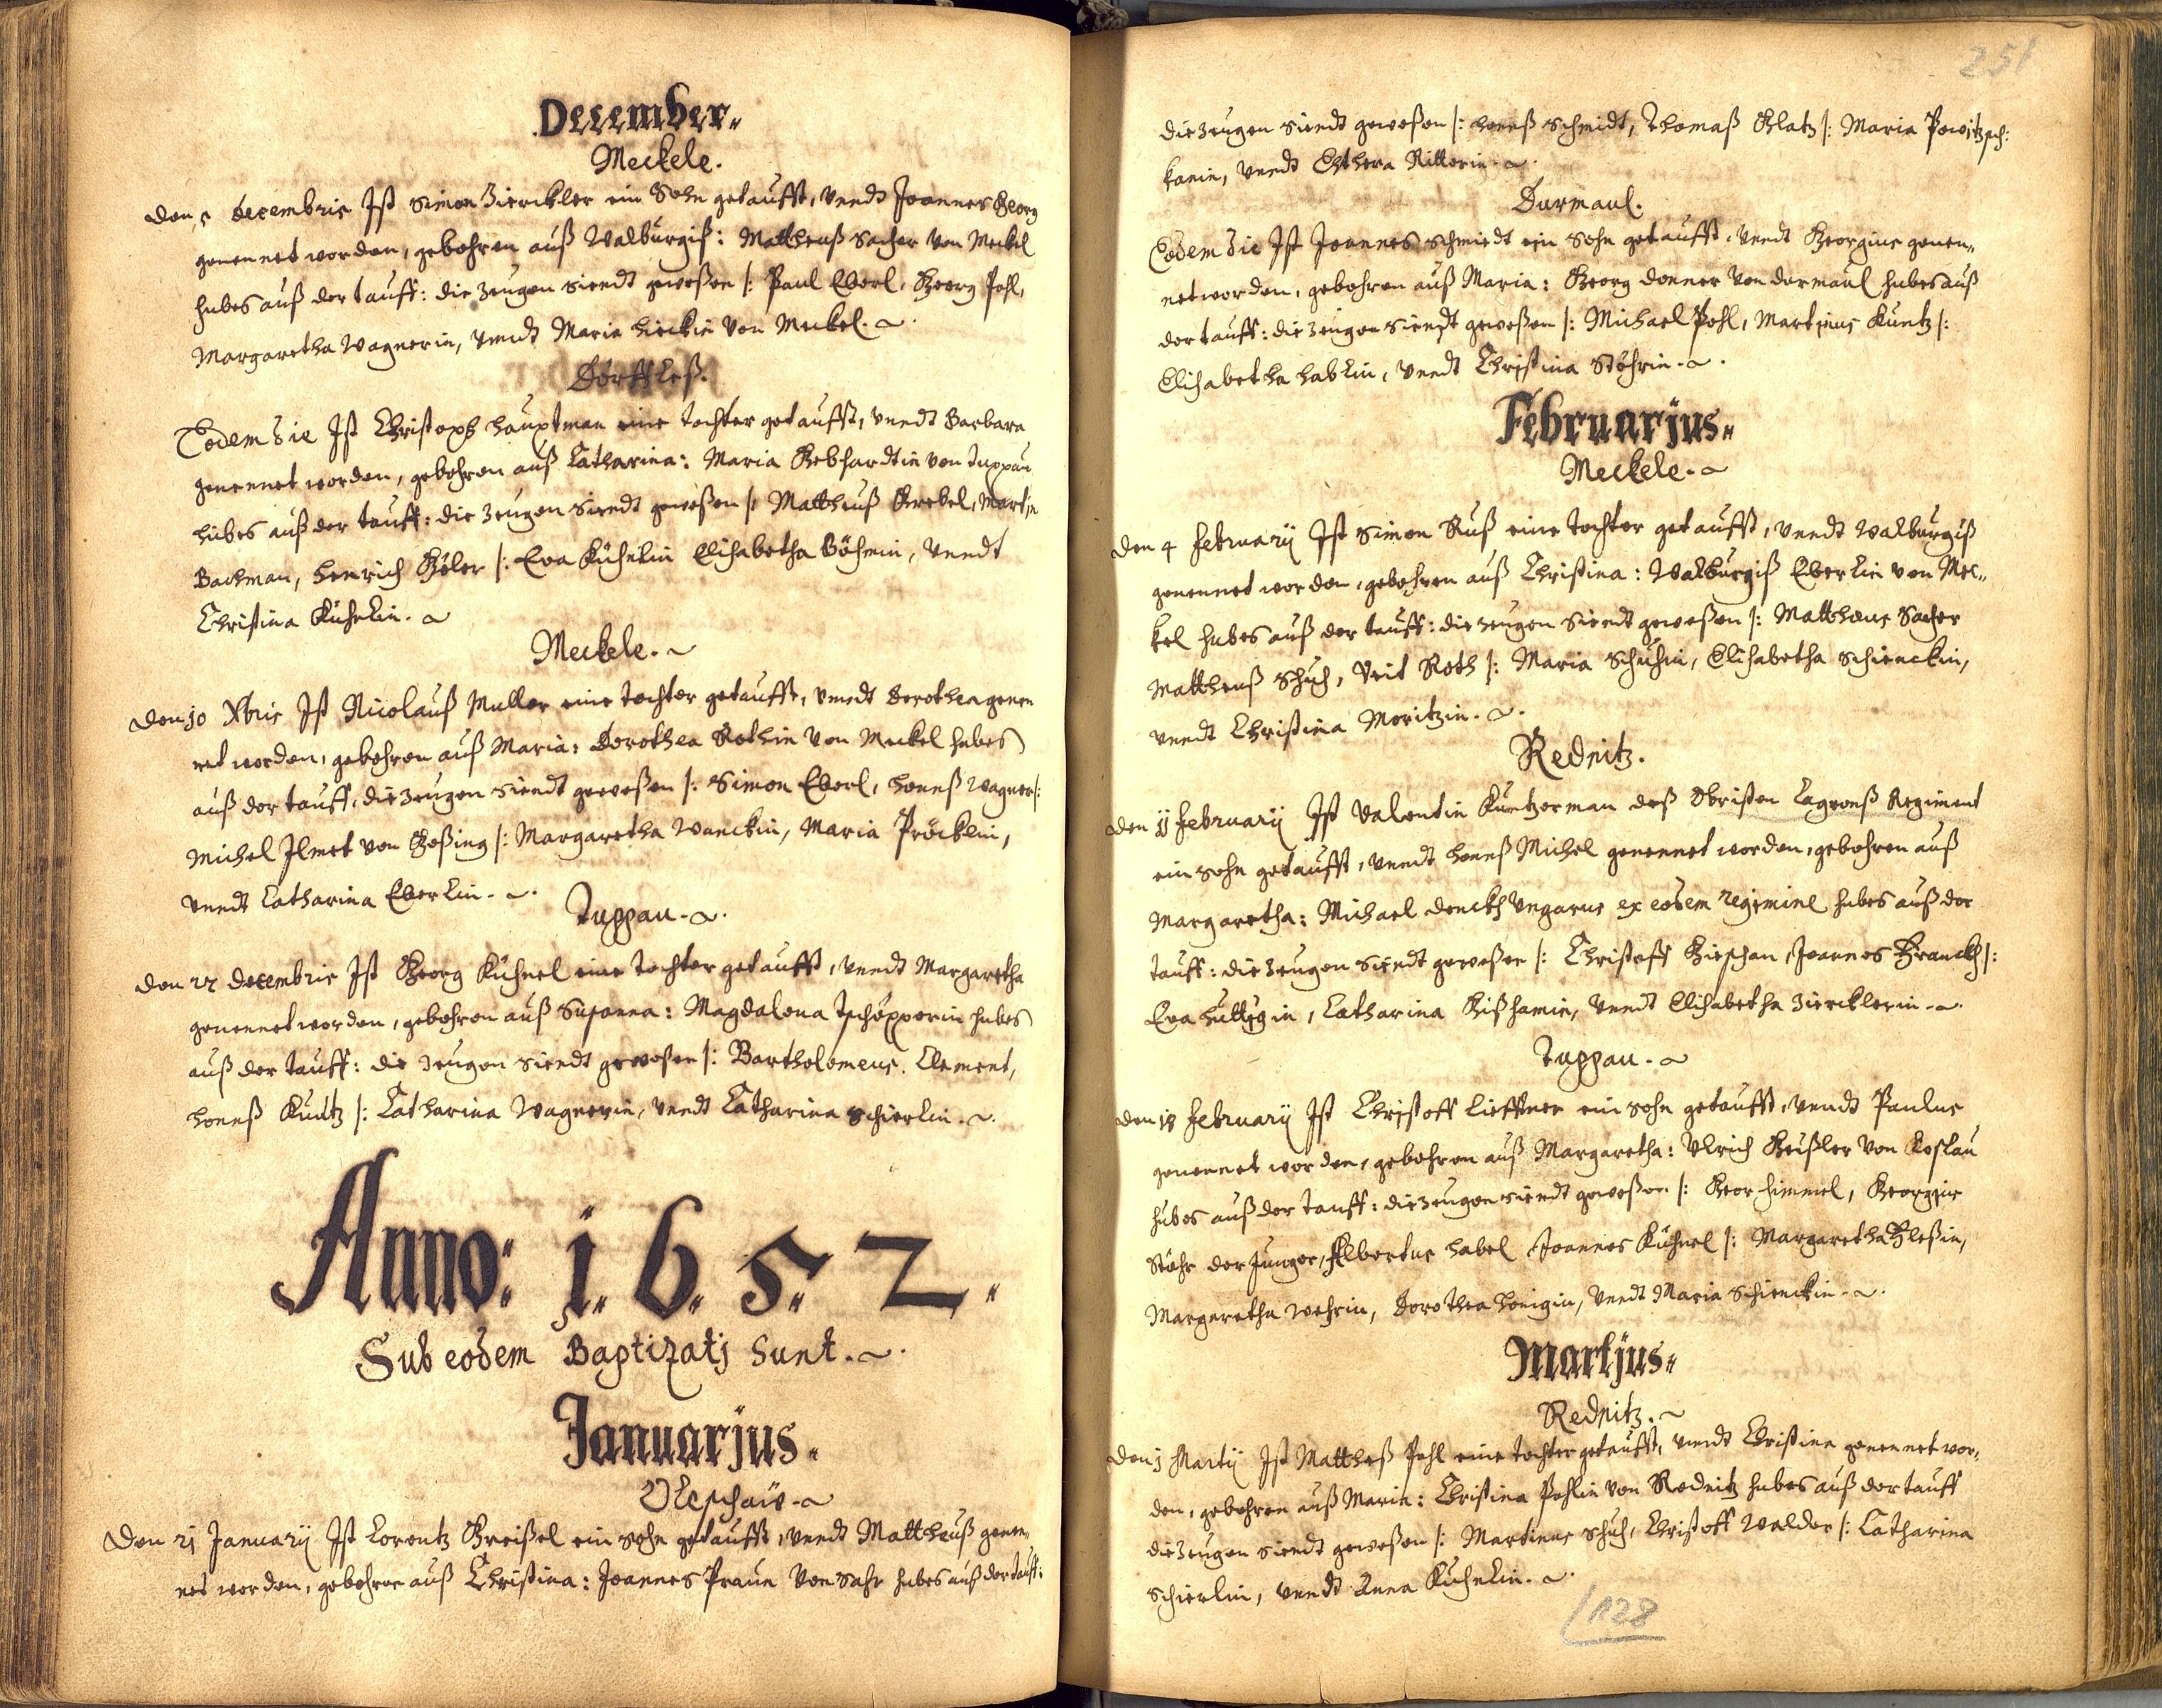 December
Meckele.
Den 5 decembris Ist Simon Zierckler ein Sohn getaufft, vnndt Joannes Georg
genennet worden, gebohren auß Walburgiß: Mattheuß Sacher von Meckel
hubes auß der tauff: die zeugen siendt geweßen |: Paul Eberl, Georg Pohl,
Margaretha Wagnerin, vnndt Maria hickin von Meckel.
Dörffleß.
Eodem die Ist Christoph hauptman eine tochter getaufft, vnndt Barbara
genennet worden, gebohren auß Catharina: Maria Gebhardtin von Tuppau
hubes auß der tauff: die zeugen siendt geweßen |: Mattheuß Krebel, Martin
Bachman, henrich |: Eva Kühnlin Elisabetha Böhmin, vnndt
Christina Kühnlin.
Meckele.
Den 10 Xbris Ist Nicolauß Muller eine tochter getaufft, vnndt Dorothea genen
net worden, gebohren auß Maria: Dorothea Rothin von Meckel hubes
auß der tauff, die zeugen siendt geweßen |: Simon Eberl, hannß Wagner |:
Michel Ilmet von Geßing |: Margaretha Wanckin, Maria Pröcklin,
vnndt Catharina Eberlin.
Tuppau.
Den 27 decembris Ist Georg Kühnel eine tochter getaufft, vnndt Margaretha
genennet worden, gebohren auß Susanna: Magdalena Tschöpperin hubes
auß der tauff: die zeugen siendt geweßen |: Bartholomeus Clement,
hannß Kuntz |: Catharina Wagnerin, vnndt Catharina Schierlin.
Anno: 1652.
Sub eodem Baptizatj Sunt.
Januarjus.
Oleschau
Den 21 Januarij Ist Lorentz Greißel ein sohn getaufft, vnndt Mattheuß genen,
net worden, gebohren auß Christina: Joannes Praun von Sahr hubes auß der tauff:
251
die zeugen siendt geweßen |: hannß Schmidt, Thomaß Glatz |: Maria Powitzsch:
kanin, vnndt Esthera Ritterin.
Durmaul.
Eodem die Ist Joannes Schmiedt ein sohn getaufft, vnndt Georgius genen,
net worden, gebohren auß Maria: Georg Donner von Durmaul hubes auß
der tauff: die zeugen siendt geweßen |: Michael Pohl, Martinus Kuntz |:
Elisabetha hablin, vnndt Christina Stöhrin.
Februarjus
Meckele.
Den 4 february Ist Simon Ruß eine tochter getaufft, vnndt Walburgiß
genennet worden, gebohren auß Christina: Walburgiß Eberlin von Mec,
kel hubes auß der tauff: die zeugen siendt geweßen |: Matthæus Sacher
Mattheuß Schuh, Veit Roth |: Maria Schuhin, Elisabetha Schienckin,
vnndt Christina Moritzin.
Rednitz.
Den 11 february Ist Valentin Kuntzerman deß Obristen Lagronß Regiment
ein sohn getaufft, vnndt hannß Michel genennet worden, gebohren auß
Margaretha: Michael denckh Vngarus ex eodem regimine hubes auß der
tauff: die zeugen siendt geweßen |: Christoff, Joannes Franckh |:
Eva huttigin, Catharina, vnndt Elisabetha Zierckerin.
Tuppau.
Den 18 february Ist Christoff Lieffner ein sohn getaufft, vnndt Paulus
genennet worden, gebohren auß Margaretha: Vlrich Geußler von Koßlau
hubes auß der tauff: die zeugen siendt geweßen |: Geor himmel, Georgius
Stöhr der Junger, Albertus habel, Joannes Kühnel |: Margaretha Fleßin,
Margaretha Wehrin, Dorothea honigin, vnndt Maria Schienckin.
Martjus
Rednitz.
Den 1 Martij Ist Mattheß Pohl eine tochter getaufft, vnndt Christina genennet wor,
den, gebohren auß Maria: Christina Pohlin von Rednitz hubes auß der tauff
die zeugen siendt geweßen |: Martinus Schuh, Christoff Walder |: Catharina
Schierlin, vnndt Anna Kuhnlin.
128